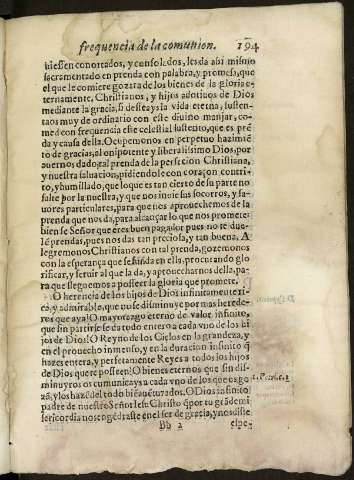 frequencia de la comunion. 194
uiessen conortados, y consolados, les da assi mismo
sacramentado en prenda con palabra, y promesa, que
el que le comiere gozara de los bienes de la gloria e-
ternamente. Christianos, y hijos adotiuos de Dios
mediante la gracia, si desseays la vida eterna, susten-
taos muy de ordinario con este diuino manjar, co-
med con frequencia este celestial sustento, que es pre
da y causa della. Ocupemonos en perpetuo hazimiẽ
to de gracias, al onipotente y liberalissimo Dios, por
auernos dado tal prenda de la perfecion Christiana,
y nuestra saluacion, pidiendole con coraçon contri-
to, y humillado, que lo que es tan cierto de su parte no
falte por la nuestra, y que nos inuie sus socorros, y fa-
uores particulares, para que nos aprouechemos de la
prenda que nos da, para alcançar lo que nos promete:
bien se Señor que eres buen pagador pues no te due-
lẽ prendas, pues nos das tan preciosa, y tan buena. A
legremonos Christianos con tal prenda, gozemonos
con la esperança que se funda en ella, procurando glo
rificar, y seruir al que la da, y aprouecharnos della, pa-
ra que lleguemos a posseer la gloria que promete.
O herencia de los hijos de Dios infinitamente ri-
ca, y admirable, que no se disminuye por mas herede-
ros que aya! O mayorazgo eterno de valor infinito,
que sin partirse se da todo entero a cada vno de los hi
jos de Dios! O Reyno de los Cielos en la grandeza, y
en el prouecho inmenso, y en la duracion infinito q̃
hazes entera, y perfetamente Reyes a todos los hijos
de Dios que te posseen! O bienes eternos que sin dis-
minuyros os comunicays a cada vno de los que os go
zã, y los hazeĩ del todo biẽauẽturados. O Dios infinito
padre de nuestro Señor Iesu Christo q̃ por tu grãde mi
sericordia nos engẽdraste en el ser de gracia, y nos diste
Bb 2 espe-
1. Petri. 1